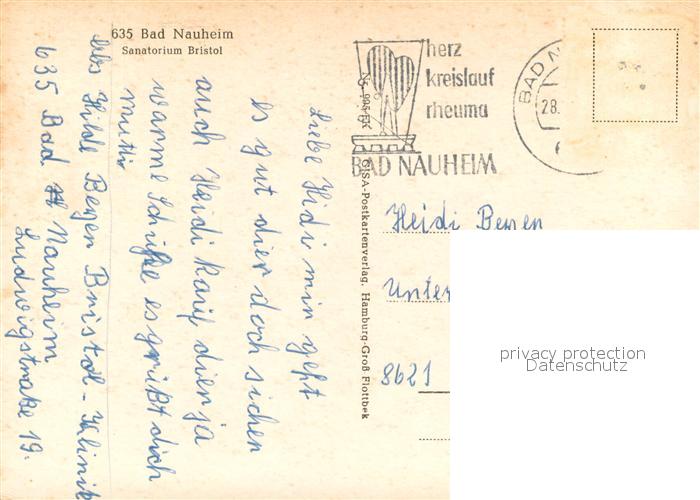 635 Bad Nauheim
Sanatorium Bristol
herz
kreislauf
rheuma
BAD NAUHEIM
BAD N
28.
6
N5 995 EK
CISA-Postkartenverlag, Hamburg-Groß Flottbek
Liebe Hidi min geht
es gut dier doch sichen
auch Heidi kauf dien ja
warme Schuhe es grüßt dich
mutti
Abs Hilde Beyen Bristol-Klinik
635 Bad Nauheim
Ludwigstraße 19.
Heidi Beyen
Unter
8621
privacy protection
Datenschutz